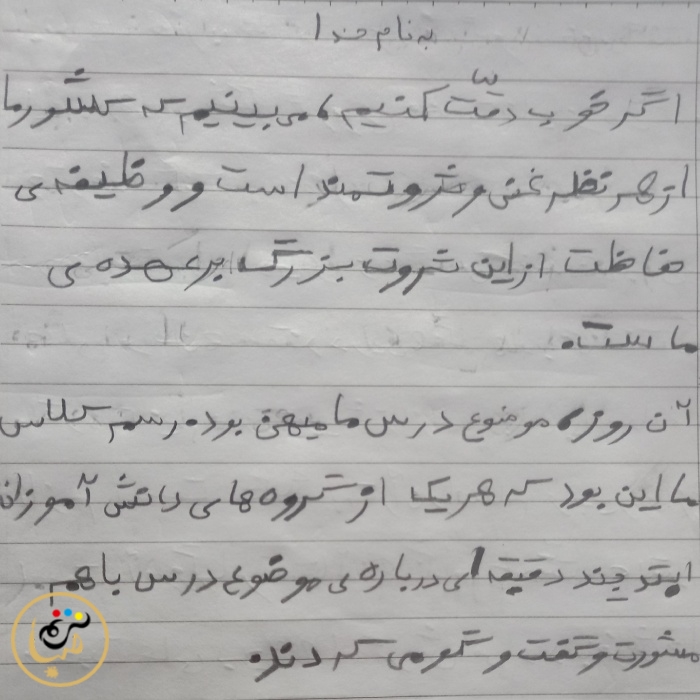 به نام خدا
اگر خوب دقّت کنیم، می بینیم که کشور ما
از هر نظر غنی و ثروتمند است و وظیفه ی
حفاظت از این ثروت بزرگ بر عهده ی
ماست.
آن روز، موضوع درس ما میهن بود. رسم کلاس
ما این بود که هر یک از گروه های دانش آموزان
ابتدا چند دقیقه ای درباره ی موضوع درس با هم
مشورت و گفت و گو می کردند.